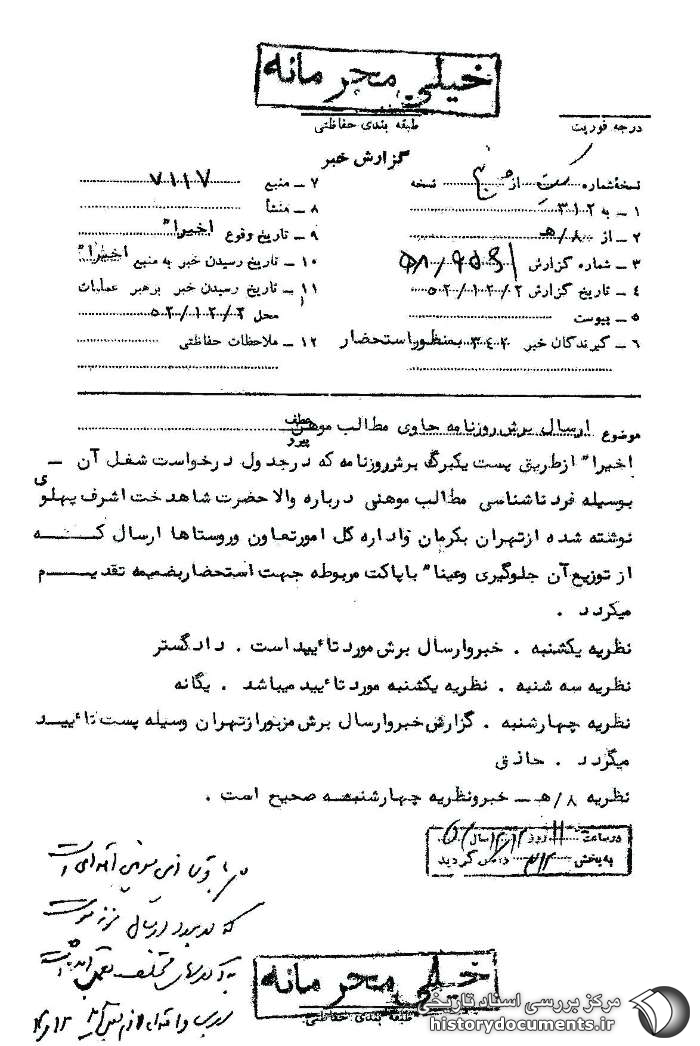 خیلی محرمانه
طبقه بندی حفاظتی
درجه فوریت
گزارش خبر
نسخه شماره از نسخه
۱ ـ به ۳۱۲
۲ ـ از ۸/هـ
۳ ـ شماره گزارش
۴ ـ تاریخ گزارش ۵۲/۱۲/۲
۵ ـ پیوست
۶ ـ گیرندگان خبر ۳۴۲ بمنظور استحضار
۷ ـ منبع ۷۱۱۷
۸ ـ منشأ
۹ ـ تاریخ وقوع اخیرا"
۱۰ ـ تاریخ رسیدن خبر به منبع اخیرا"
۱۱ ـ تاریخ رسیدن خبر برهبر عملیات
محل ۵۲/۱۲/۲
۱۲ ـ ملاحظات حفاظتی
موضوع ارسال برش روزنامه حاوی مطالب موهن
عطف
پیرو
اخیرا" ازطریق پست یکبرگ برش روزنامه که درجدول درخواست شغل آن ـ
بوسیله فرد ناشناسی مطالب موهنی درباره والاحضرت شاهدخت اشرف پهلوی
نوشته شده ازتهران بکرمان واداره کل امورتعاون وروستاها ارسال کـــه
از توزیع آن جلوگیری وعینا" باپاکت مربوطه جهت استحضاربضمیمه تقدیـم
میگردد .
نظریه یکشنبه . خبروارسال برش مورد تأیید است . دادگستر
نظریه سه شنبه . نظریه یکشنبه مورد تأیید میباشد . یگانه
نظریه چهارشنبه . گزارش خبروارسال برش مزبورازتهران وسیله پست تأییـد
میگردد . حاذق
نظریه ۸/هـ ـ خبرونظریه چهارشنبه صحیح است .
درساعت روز سال
به بخش ۳۱۲ گردید
خیلی محرمانه
طبقه بندی حفاظتی
مرکز بررسی اسناد تاریخی
historydocuments.ir